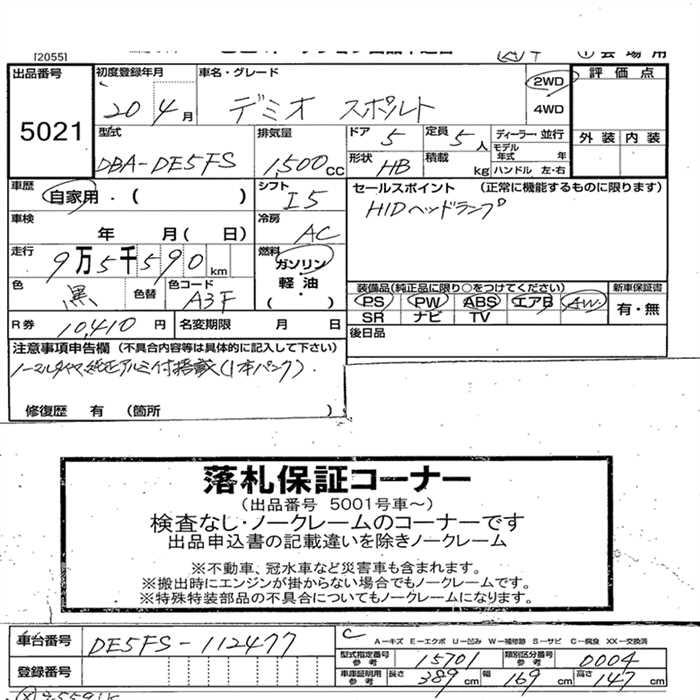 [2055]
① 会場用
出品番号 5021
初度登録年月 20年4月
車名・グレード デミオ スポルト
2WD
4WD
評価点
外装 内装
型式 DBA-DE5FS
排気量 1,500cc
ドア 5
定員 5人
形状 HB
積載 kg
ディーラー・並行
モデル年式 年
ハンドル 左・右
車歴 自家用・( )
シフト I5
セールスポイント (正常に機能するものに限ります)
HIDヘッドランプ
車検 年 月( 日)
冷房 AC
走行 9万5千590km
燃料 ガソリン・軽油・( )
色 黒 色替 色コード A3F
装備品(純正品に限り○をつけてください)
PS PW ABS エアB AW
SR ナビ TV
新車保証書 有・無
R券 10,410円
名変期限 月 日
後日品
注意事項申告欄 (不具合内容等は具体的に記入して下さい)
ノーマルタイヤ純正アルミ付搭載(1本パンク).
修復歴 有 (箇所 )
落札保証コーナー
(出品番号 5001号車~)
検査なし・ノークレームのコーナーです
出品申込書の記載違いを除きノークレーム
※不動車、冠水車など災害車も含まれます。
※搬出時にエンジンが掛からない場合でもノークレームです。
※特殊特装部品の不具合についてもノークレームになります。
車台番号 DE5FS-112477
登録番号
C
A-キズ E-エクボ U-凹み W-補修跡 S-サビ C-腐食 XX-交換済
型式指定番号 参考 15701
類別区分番号 参考 0004
車庫証明用 参考 長さ 389cm 幅 169cm 高さ 147cm